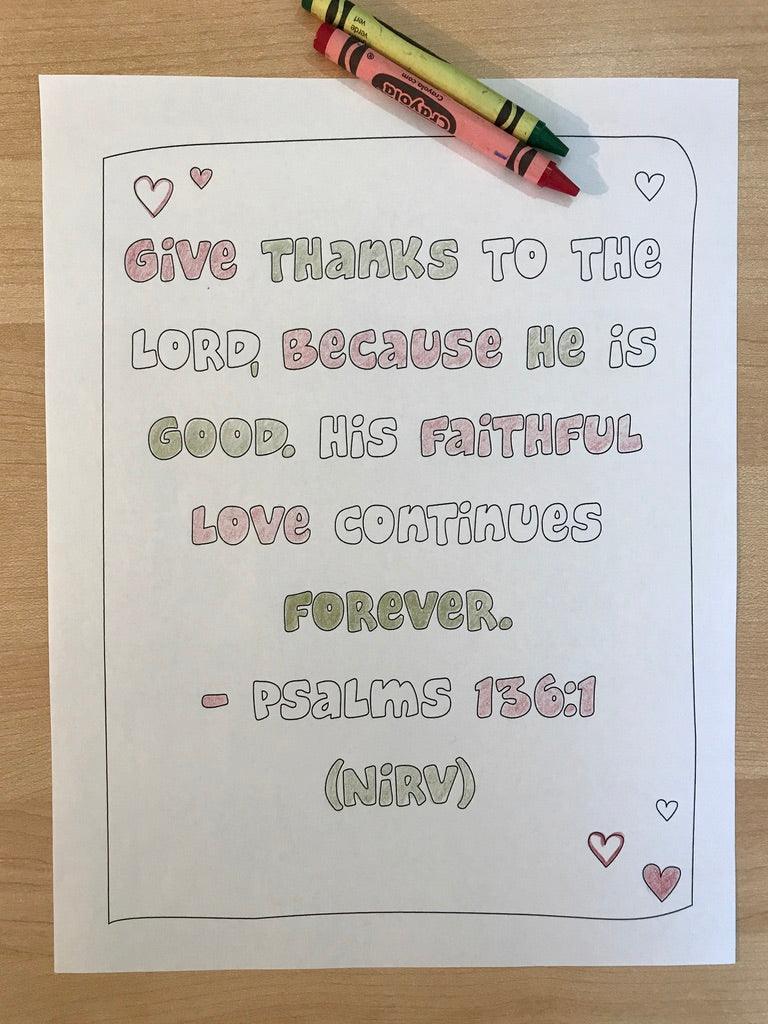 verde
vert
Crayola.com
Crayola
Give THanKS TO THe
LORD, Because He is
GOOD. His FaiTHFUL
LOVE conTinues
FOReVeR.
- PSaLMS 136:1
(NiRV)